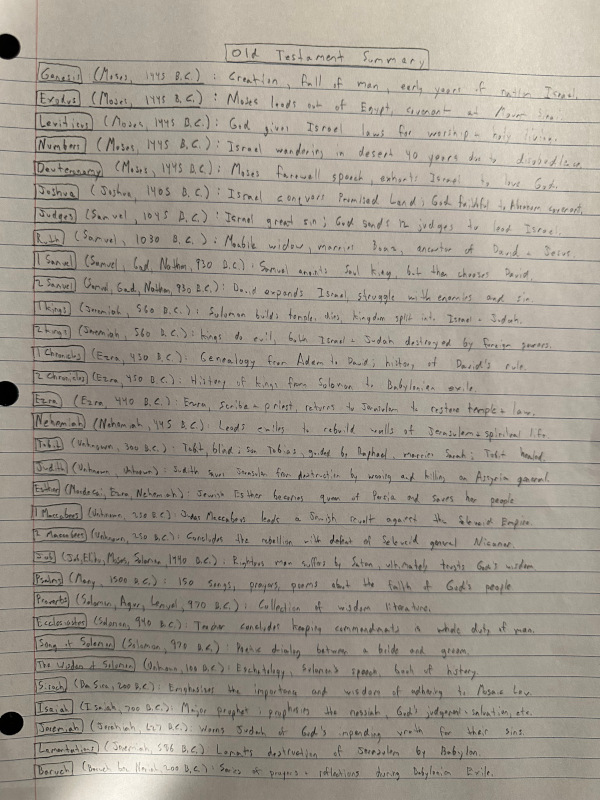 Old Testament Summary
Genesis (Moses, 1445 B.C.): Creation, fall of man, early years of nation Israel.
Exodus (Moses, 1445 B.C.): Moses leads out of Egypt, covenant at Mount Sinai.
Leviticus (Moses, 1445 B.C.): God gives Israel laws for worship + holy living.
Numbers (Moses, 1445 B.C.): Israel wandering in desert 40 years due to disobedience.
Deuteronomy (Moses, 1445 B.C.): Moses farewell speech, exhorts Israel to love God.
Joshua (Joshua, 1405 B.C.): Israel conquers Promised Land; God faithful to Abraham covenant.
Judges (Samuel, 1045 B.C.): Israel great sin; God sends 12 judges to lead Israel.
Ruth (Samuel, 1030 B.C.): Moabite widow, marries Boaz, ancestor of David + Jesus.
1 Samuel (Samuel, Gad, Nathan, 930 B.C.): Samuel anoints Saul king, but then chooses David.
2 Samuel (Samuel, Gad, Nathan, 930 B.C.): David expands Israel, struggle with enemies and sin.
1 Kings (Jeremiah, 560 B.C.): Solomon builds temple, dies, kingdom split into Israel + Judah.
2 Kings (Jeremiah, 560 B.C.): kings do evil, both Israel + Judah destroyed by foreign powers.
1 Chronicles (Ezra, 450 B.C.): Genealogy from Adam to David; history of David's rule.
2 Chronicles (Ezra, 450 B.C.): History of kings from Solomon to Babylonian exile.
Ezra (Ezra, 440 B.C.): Ezra, scribe + priest, returns to Jerusalem to restore temple + law.
Nehemiah (Nehemiah, 445 B.C.): Leads exiles to rebuild walls of Jerusalem + spiritual life.
Tobit (Unknown, 300 B.C.): Tobit, blind; son Tobias, guided by Raphael, marries Sarah; Tobit healed.
Judith (Unknown, Unknown): Judith saves Jerusalem from destruction by wooing and killing an Assyria general.
Esther (Mordecai, Ezra, Nehemiah): Jewish Esther becomes queen of Persia and saves her people.
1 Maccabees (Unknown, 250 B.C.): Judas Maccabeus leads a Jewish revolt against the Seleucid Empire.
2 Maccabees (Unknown, 250 B.C.): Concludes the rebellion with defeat of Seleucid general Nicanor.
Job (Job, Elihu, Moses, Solomon 1440 B.C.): Righteous man suffers by Satan, ultimately trusts God's wisdom.
Psalms (Many, 1500 B.C.): 150 songs, prayers, poems about the faith of God's people.
Proverbs (Solomon, Agur, Lemuel, 970 B.C.): Collection of wisdom literature.
Ecclesiastes (Solomon, 940 B.C.): Teacher concludes keeping commandments is whole duty of man.
Song of Solomon (Solomon, 970 B.C.): Poetic dialog between a bride and groom.
The Wisdom of Solomon (Unknown, 100 B.C.): Eschatology, Solomon's speech, book of history.
Sirach (Ben Sira, 200 B.C.): Emphasises the importance and wisdom of adhering to Mosaic Law.
Isaiah (Isaiah, 700 B.C.): Major prophet; prophesies the messiah, God's judgement + salvation, etc.
Jeremiah (Jeremiah, 627 B.C.): Warns Judah of God's impending wrath for their sins.
Lamentations (Jeremiah, 586 B.C.) Laments destruction of Jerusalem by Babylon.
Baruch (Baruch ben Neriah, 200 B.C.): Series of prayers + reflections during Babylonian Exile.